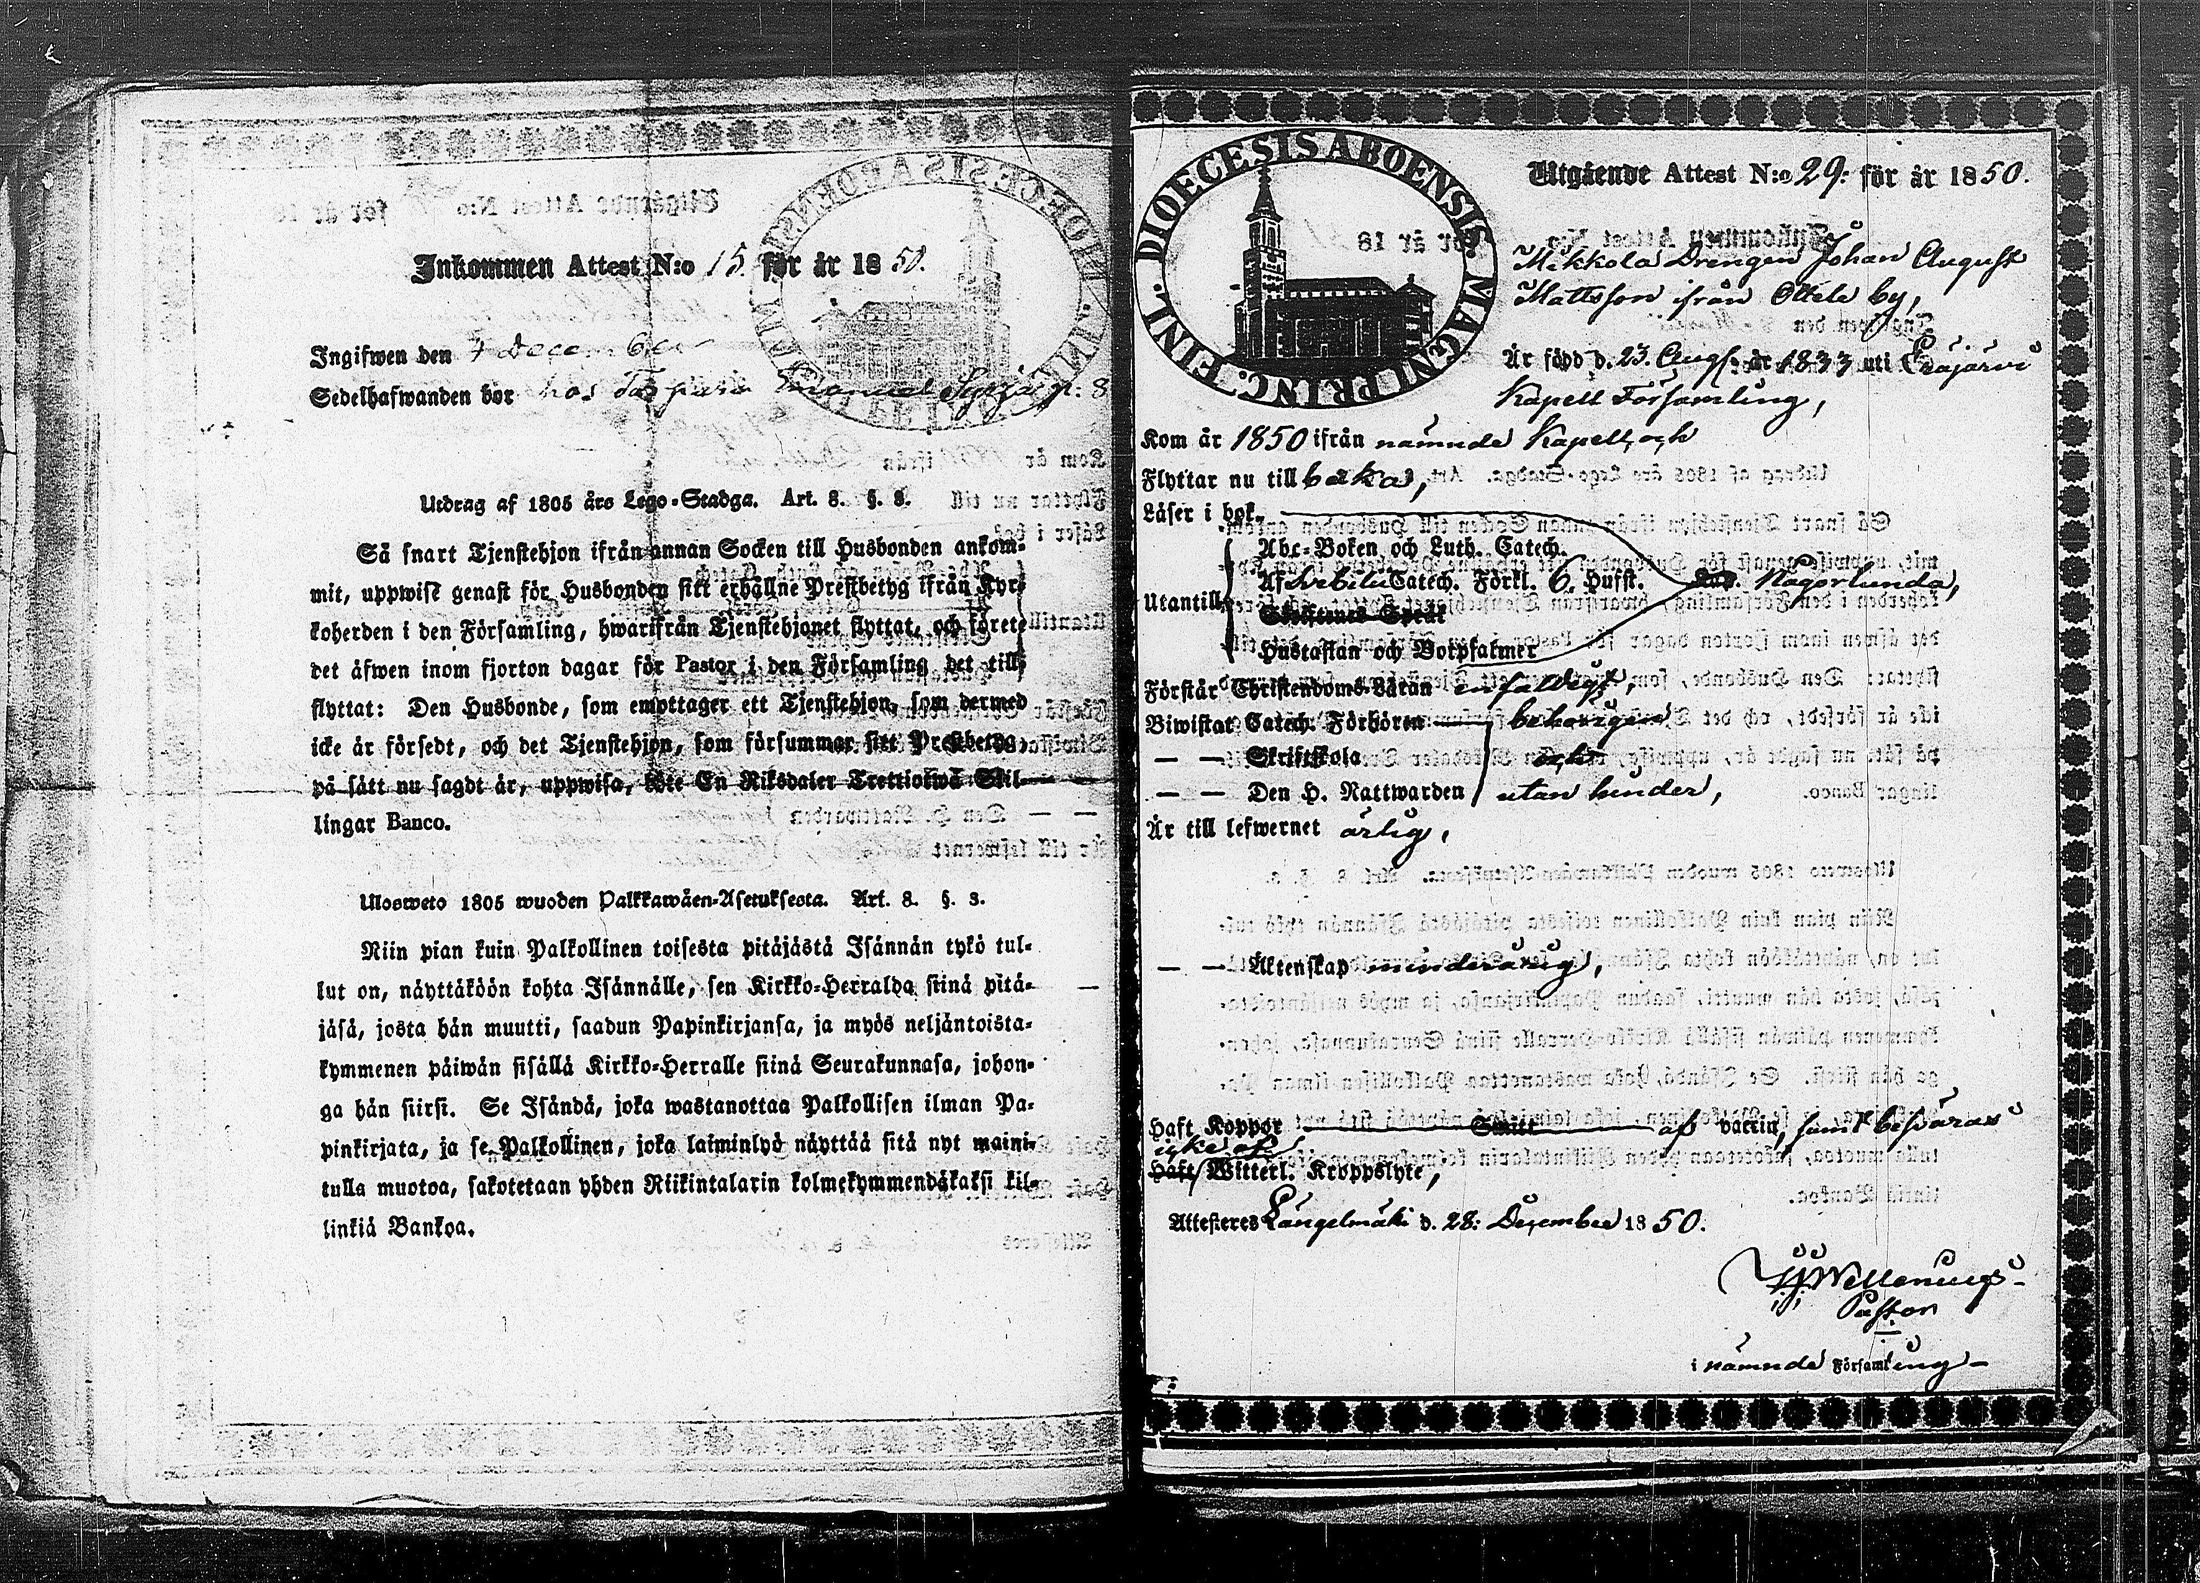 Inkommen Attest N:o 15. för år 1850.
Ingifwen den 4 December
Sedelhafwanden bor hos Emanuel
Utdrag af 1805 års Lego-Stadga. Art. 8. §. 3.
Så snart Tjenstehjon ifrån annan Socken till Husbonden ankom-
mit, uppwise genast för Husbonden sitt erhållne Prestbetyg ifrån Kyr-
koherden i den Församling, hwarifrån Tjenstehjonet flyttat, och förete
det äfwen inom fjorton dagar för Pastor i den Församling det till-
flyttat: Den Husbonde, som emottager ett Tjenstehjon, som dermed
icke är försedt, och det Tjenstehjon, som försummar sitt Prestbetyg,
på sätt nu sagdt är, uppwisa, böte En Riksdaler Trettiotwå Skil-
lingar Banco.
Ulosweto 1805 wuoden Palkkawäen-Asetuksesta. Art. 8. §. 3.
Niin pian kuin Palkollinen toisesta pitäjästä Isännän tykö tul-
lut on, näyttäköön kohta Isännälle, sen Kirkko-Herralda siinä pitä-
jäsä, josta hän muutti, saadun Papinkirjansa, ja myös neljäntoista-
kymmenen päiwän sisällä Kirkko-Herralle siinä Seurakunnasa, johon-
ga hän siirsi. Se Isändä, joka wastanottaa Palkollisen ilman Pa-
pinkirjata, ja se Palkollinen, joka laiminlyö näyttää sitä nyt maini-
tulla muotoa, sakotetaan yhden Riikintalarin kolmekymmendäkaksi kil-
linkiä Bankoa.
DIOECESIS ABOENSIS. MAGNI PRINC. FINL.
Utgående Attest N:o 29: för år 1850.
Mikkola Drengen Johan August
Mattsson ifrån Ottele by,
Är född d. 23. Aug. år 1833 uti Eräjärvi
Kapell Församling,
Kom år 1850 ifrån nämnde Kapell, och
Flyttar nu till baka,
Läser i bok
Utantill
Abc-Boken och Luth. Catech.
Af Svebilii Catech. Förkl. 6. Hufst. Någorlunda,
Skriftenes Språk
Hustaflan och Botpsalmer
Förstår Christendoms-Läran enfaldigt,
Biwistat Catech. Förhören behörigen
— — Skriftskola och
— — Den H. Nattwarden utan hinder,
Är till lefwernet ärlig,
— — Äktenskap minderårig,
Haft Koppor af naturen, samt besväras
icke af
Haft Witterl. Kroppslyte,
Attesteras Längelmäki d. 28: December 1850.
Pastor
i nämnde Församling